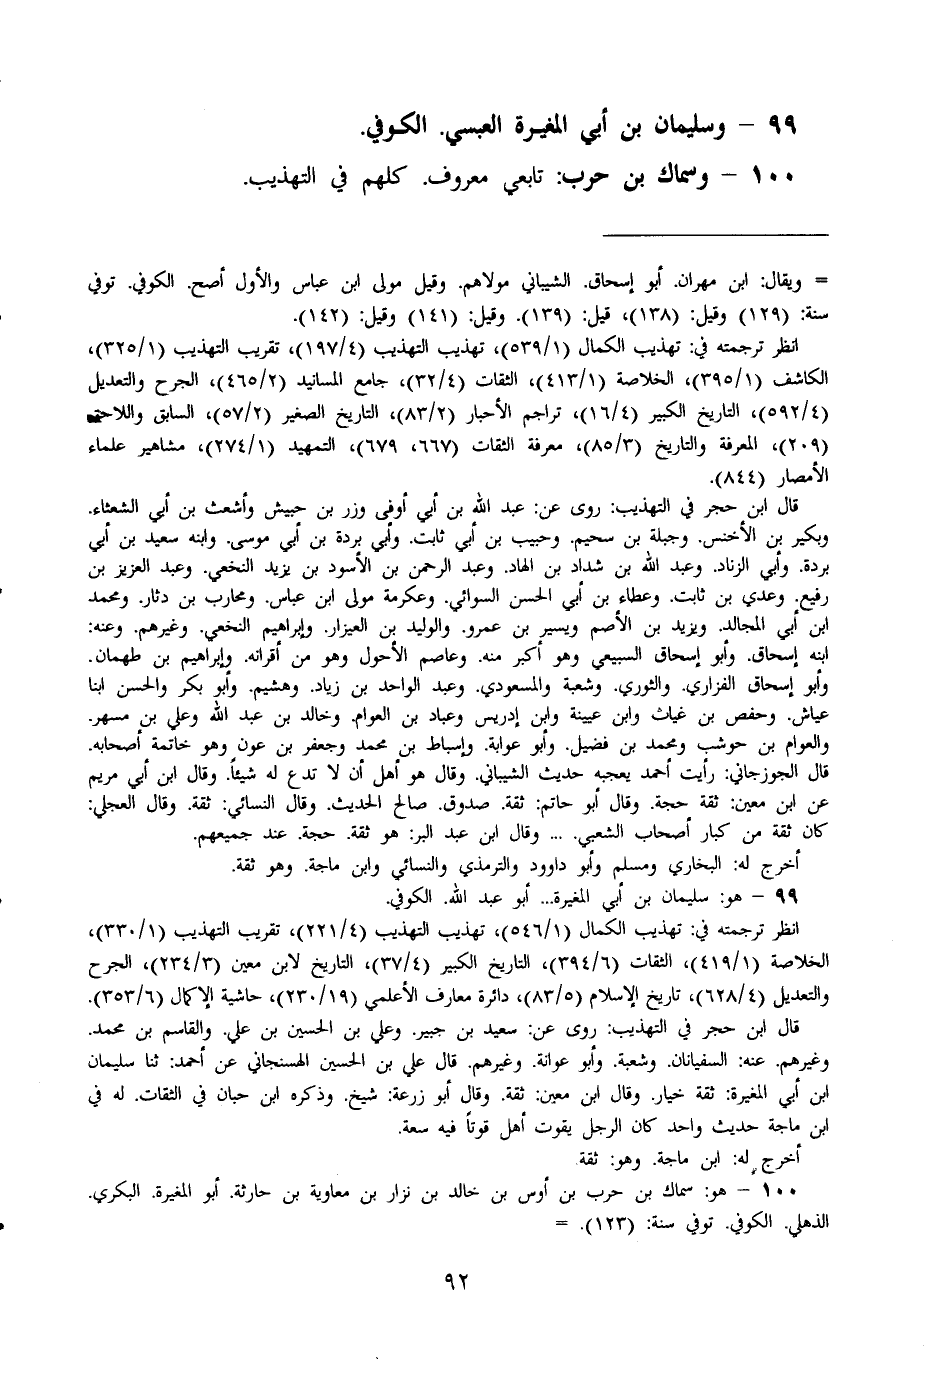 ٩٩ – وسليمان بن أبي المغيرة العبسي. الكوفي.
١٠٠ – وسماك بن حرب: تابعي معروف. كلهم في التهذيب.
= ويقال: ابن مهران. أبو إسحاق. الشيباني مولاهم. وقيل مولى ابن عباس والأول أصح. الكوفي. توفي
سنة: (١٢٩) وقيل: (١٣٨)، قيل: (١٣٩). وقيل: (١٤١) وقيل: (١٤٢).
انظر ترجمته في: تهذيب الكمال (٥٣٩/١)، تهذيب التهذيب (١٩٧/٤)، تقريب التهذيب (٣٢٥/١)،
الكاشف (٣٩٥/١)، الخلاصة (٤١٣/١)، الثقات (٣٢/٤)، جامع المسانيد (٤٦٥/٢)، الجرح والتعديل
(٥٩٢/٤)، التاريخ الكبير (١٦/٤)، تراجم الأحبار (٨٣/٢)، التاريخ الصغير (٥٧/٢)، السابق واللاحق
(٢٠٩)، المعرفة والتاريخ (٨٥/٣)، معرفة الثقات (٦٦٧، ٦٧٩)، التمهيد (٢٧٤/١)، مشاهير علماء
الأمصار (٨٤٤).
قال ابن حجر في التهذيب: روى عن: عبد الله بن أبي أوفى وزر بن حبيش وأشعث بن أبي الشعثاء.
وبكير بن الأخنس. وجبلة بن سحيم. وحبيب بن أبي ثابت. وأبي بردة بن أبي موسى. وابنه سعيد بن أبي
بردة. وأبي الزناد. وعبد الله بن شداد بن الهاد. وعبد الرحمن بن الأسود بن يزيد النخعي. وعبد العزيز بن
رفيع. وعدي بن ثابت. وعطاء بن أبي الحسن السوائي. وعكرمة مولى ابن عباس. ومحارب بن دثار. ومحمد
ابن أبي المجالد. ويزيد بن الأصم ويسير بن عمرو. والوليد بن العيزار. وإبراهيم النخعي. وغيرهم. وعنه:
ابنه إسحاق. وأبو إسحاق السبيعي وهو أكبر منه. وعاصم الأحول وهو من أقرانه. وإبراهيم بن طهمان.
وأبو إسحاق الفزاري. والثوري. وشعبة والمسعودي. وعبد الواحد بن زياد. وهشيم. وأبو بكر والحسن ابنا
عياش. وحفص بن غياث وابن عيينة وابن إدريس وعباد بن العوام. وخالد بن عبد الله وعلي بن مسهر.
والعوام بن حوشب ومحمد بن فضيل. وأبو عوابة. وإسباط بن محمد وجعفر بن عون وهو خاتمة أصحابه.
قال الجوزجاني: رأيت أحمد يعجبه حديث الشيباني. وقال هو أهل أن لا تدع له شيئاً. وقال ابن أبي مريم
عن ابن معين: ثقة حجة. وقال أبو حاتم: ثقة. صدوق. صالح الحديث. وقال النسائي: ثقة. وقال العجلي:
كان ثقة من كبار أصحاب الشعبي. ... وقال ابن عبد البر: هو ثقة. حجة. عند جميعهم.
أخرج له: البخاري ومسلم وأبو داوود والترمذي والنسائي وابن ماجة. وهو ثقة.
٩٩ – هو: سليمان بن أبي المغيرة... أبو عبد الله. الكوفي.
انظر ترجمته في: تهذيب الكمال (٥٤٦/١)، تهذيب التهذيب (٢٢١/٤)، تقريب التهذيب (٣٣٠/١)،
الخلاصة (٤١٩/١)، الثقات (٣٩٤/٦)، التاريخ الكبير (٣٧/٤)، التاريخ لابن معين (٢٣٤/٣)، الجرح
والتعديل (٦٢٨/٤)، تاريخ الإسلام (٨٣/٥)، دائرة معارف الأعلمي (٢٣٠/١٩)، حاشية الإكمال (٣٥٣/٦).
قال ابن حجر في التهذيب: روى عن: سعيد بن جبير. وعلي بن الحسين بن علي. والقاسم بن محمد.
وغيرهم. عنه: السفيانان. وشعبة. وأبو عوانة. وغيرهم. قال علي بن الحسين الهسنجاني عن أحمد: ثنا سليمان
ابن أبي المغيرة: ثقة خيار. وقال ابن معين: ثقة. وقال أبو زرعة: شيخ. وذكره ابن حبان في الثقات. له في
ابن ماجة حديث واحد كان الرجل يقوت أهل قوتاً فيه سعة.
أخرج له: ابن ماجة. وهو: ثقة
١٠٠ – هو: سماك بن حرب بن أوس بن خالد بن نزار بن معاوية بن حارثة. أبو المغيرة. البكري.
الذهلي. الكوفي. توفي سنة: (١٢٣). =
٩٢